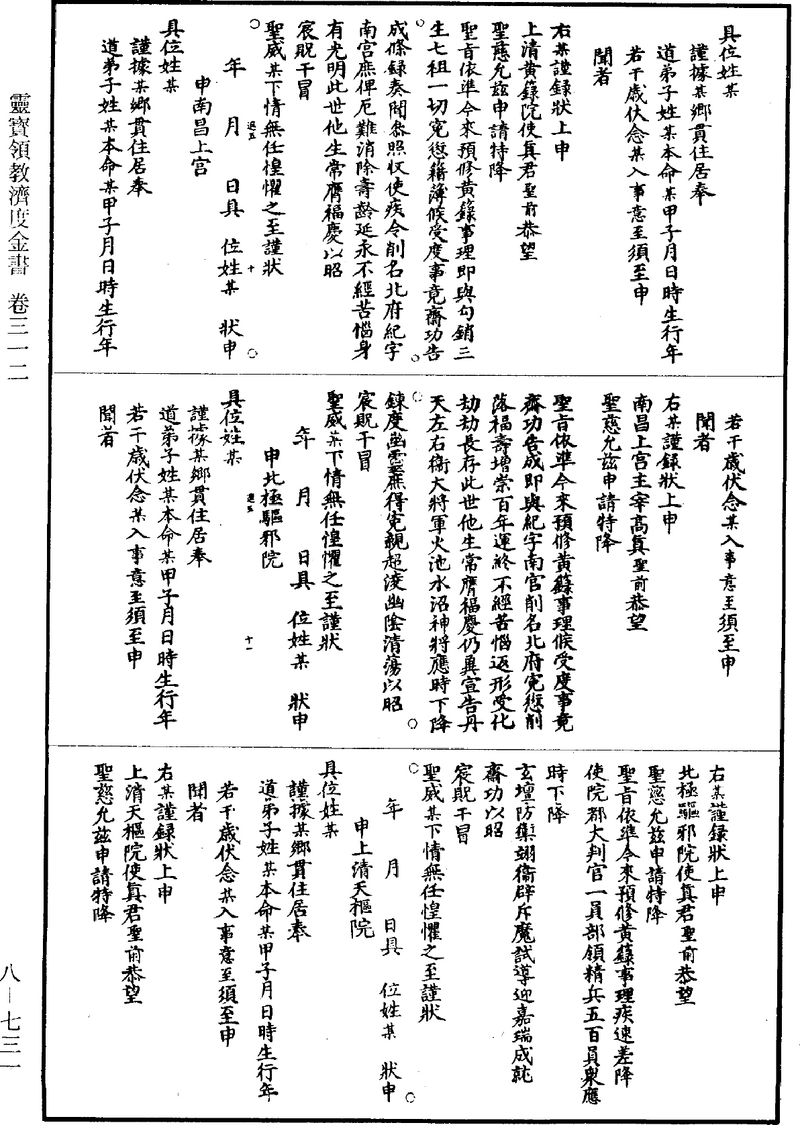 靈寶領教濟度金書 卷三一二
具位姓某
謹據某鄉貫住居奉
道弟子姓某本命某甲子月日時生行年
若干歲伏念某入事意至須至申
聞者
右某謹錄狀上申
上清黃籙院使真君聖前恭望
聖慈允茲申請特降
聖旨依準今來預修黃籙事理即與勾銷三
生七祖一切冤愆籍簿候受度事竟齋功告
成條錄奏聞叅照收使疾令削名北府紀字
南宮庶俾厄難消除壽齡延永不經苦惱身
有光明此世他生常膺福慶以昭
宸貺干冒
聖威某下情無任惶懼之至謹狀
年 月 日具 位姓某 狀申
申南昌上宮
具位姓某
謹據某鄉貫住居奉
道弟子姓某本命某甲子月日時生行年
若干歲伏念某入事意至須至申
聞者
右某謹錄狀上申
南昌上宮主宰高真聖前恭望
聖慈允茲申請特降
聖旨依準今來預修黃籙事理候受度事竟
齋功告成即與紀字南宮削名北府冤愆削
落福壽增崇百年運終不經苦惱返形受化
劫劫長存此世他生常膺福慶仍冀宣告丹
天左右衛大將軍火池水沼神將應時下降
鍊度幽靈庶得冤親超淩幽陰清蕩以昭
宸貺干冒
聖威某下情無任惶懼之至謹狀
年 月 日具 位姓某 狀申
申北極驅邪院
具位姓某
謹據某鄉貫住居奉
道弟子姓某本命某甲子月日時生行年
若干歲伏念某入事意至須至申
聞者
右某謹錄狀上申
北極驅邪院使真君聖前恭望
聖慈允茲申請特降
聖旨依準今來預修黃籙事理疾速差降
使院都大判官一員部領精兵五百員衆應
時下降
玄壇防集翊衛辟斥魔試導迎嘉瑞成就
齋功以昭
宸貺干冒
聖威某下情無任惶懼之至謹狀
年 月 日具 位姓某 狀申
申上清天樞院
具位姓某
謹據某鄉貫住居奉
道弟子姓某本命某甲子月日時生行年
若干歲伏念某入事意至須至申
聞者
右某謹錄狀上申
上清天樞院使真君聖前恭望
聖慈允茲申請特降
十
十一
八—七三一